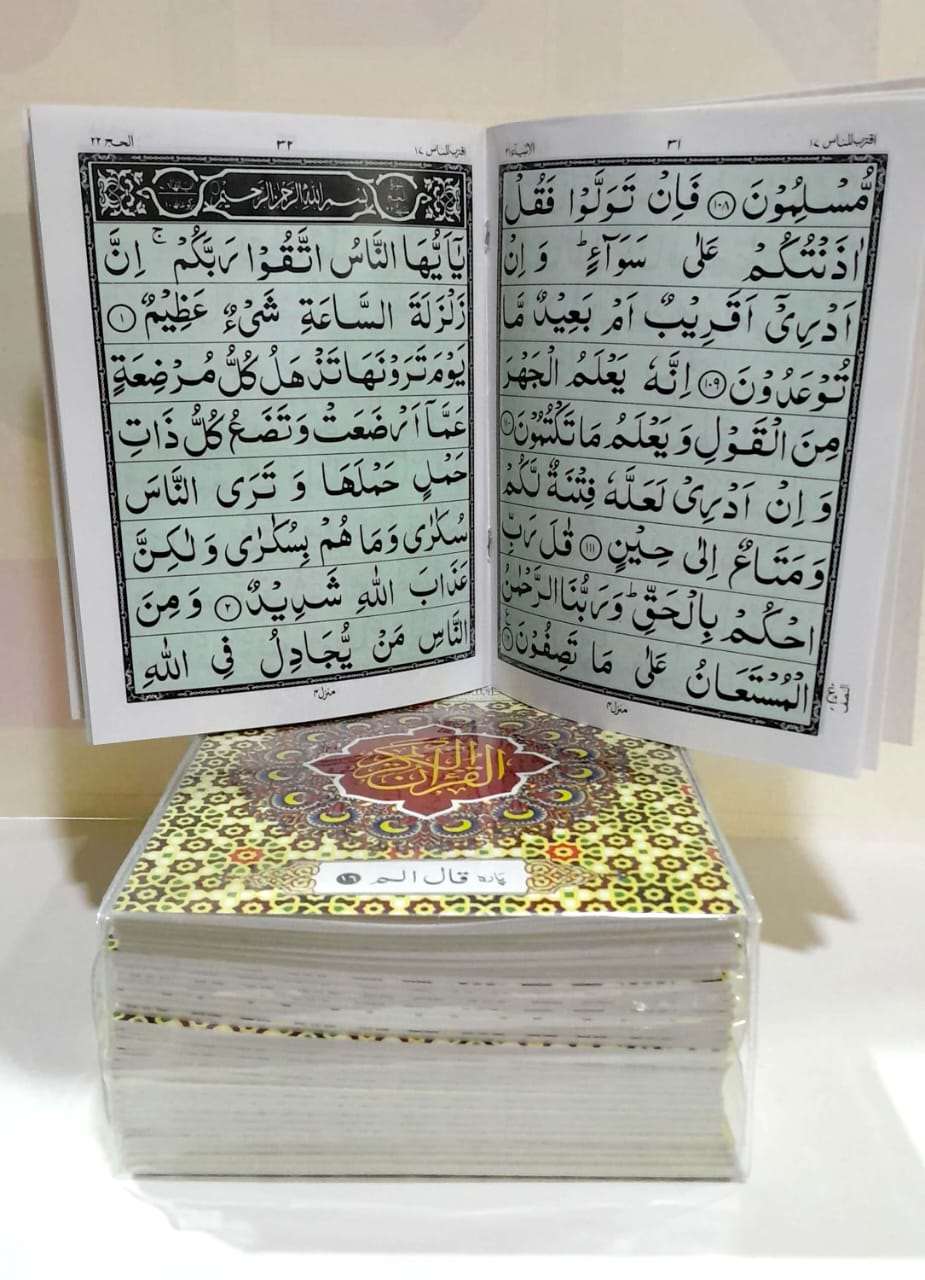 اقترب للناس ١٧
٣١
الانبياء ٢١
مُّسْلِمُوْنَ ﴿١٠٨﴾ فَاِنْ تَوَلَّوْا فَقُلْ
اٰذَنْتُكُمْ عَلٰى سَوَآءٍ ؕ وَ اِنْ
اَدْرِىْٓ اَقَرِيْبٌ اَمْ بَعِيْدٌ مَّا
تُوْعَدُوْنَ ﴿١٠٩﴾ اِنَّهٗ يَعْلَمُ الْجَهْرَ
مِنَ الْقَوْلِ وَ يَعْلَمُ مَا تَكْتُمُوْنَ ﴿١١٠﴾
وَ اِنْ اَدْرِىْ لَعَلَّهٗ فِتْنَةٌ لَّكُمْ
وَ مَتَاعٌ اِلٰى حِيْنٍ ﴿١١١﴾ قٰلَ رَبِّ
احْكُمْ بِالْحَقِّ ؕ وَ رَبُّنَا الرَّحْمٰنُ
الْمُسْتَعَانُ عَلٰى مَا تَصِفُوْنَ ﴿١١٢﴾
النصف
منزل ٤
اقترب للناس ١٧
٣٢
الحج ٢٢
بِسْمِ اللّٰهِ الرَّحْمٰنِ الرَّحِيْمِ
يٰٓاَيُّهَا النَّاسُ اتَّقُوْا رَبَّكُمْ ۚ اِنَّ
زَلْزَلَةَ السَّاعَةِ شَىْءٌ عَظِيْمٌ ﴿١﴾
يَوْمَ تَرَوْنَهَا تَذْهَلُ كُلُّ مُرْضِعَةٍ
عَمَّآ اَرْضَعَتْ وَ تَضَعُ كُلُّ ذَاتِ
حَمْلٍ حَمْلَهَا وَ تَرَى النَّاسَ
سُكٰرٰى وَ مَا هُمْ بِسُكٰرٰى وَ لٰكِنَّ
عَذَابَ اللّٰهِ شَدِيْدٌ ﴿٢﴾ وَ مِنَ
النَّاسِ مَنْ يُّجَادِلُ فِى اللّٰهِ
منزل ٤
القرآن الكريم
پاره قال الم ١٦